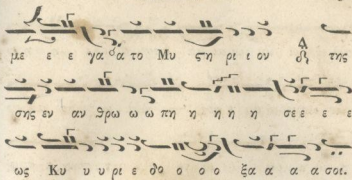 με ε ε γα α το Μυ ϛη ρι ον της
σης εν αν θρω ω ω πη η η η σε ε ε ε
ως Κυ υ υ ρι ε δο ο ο ο ξα α α α σοι.